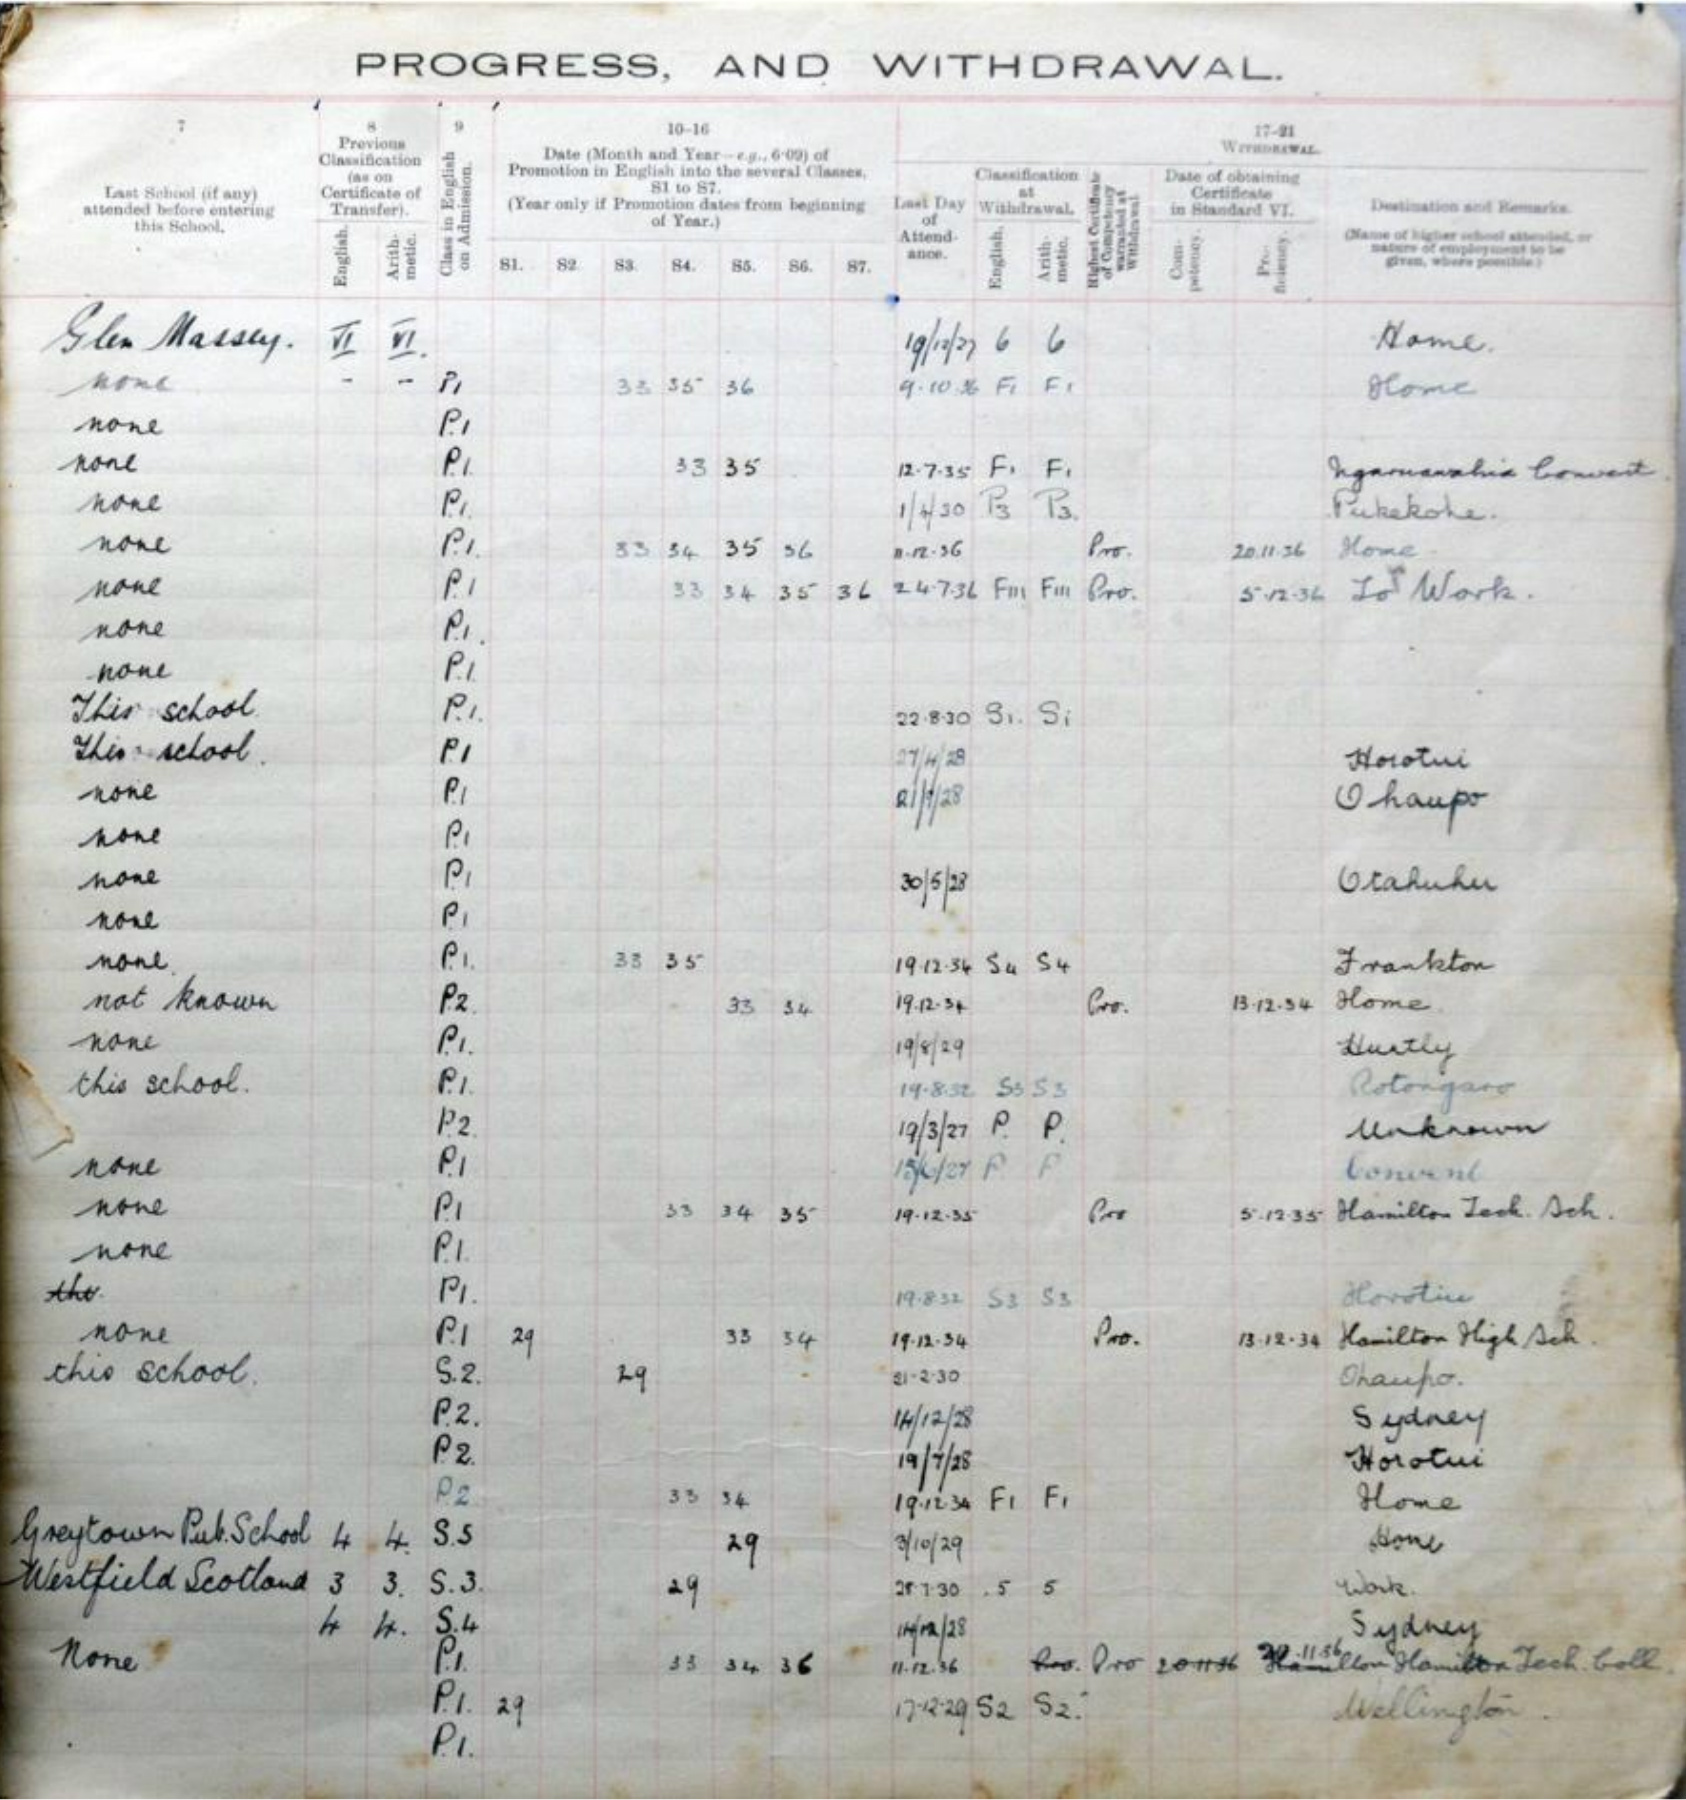 PROGRESS, AND WITHDRAWAL.
7 8 9 10-16 17-21
Last School (if any) attended before entering this School.
Previous Classification (as on Certificate of Transfer).
English. Arithmetic.
Class in English on Admission.
Date (Month and Year—e.g., 6·09) of Promotion in English into the several Classes, S1 to S7.
(Year only if Promotion dates from beginning of Year.)
S1. S2 S3. S4. S5. S6. S7.
WITHDRAWAL.
Last Day of Attendance.
Classification at Withdrawal.
English. Arithmetic.
Highest Certificate of Competency warranted at Withdrawal.
Date of obtaining Certificate in Standard VI.
Competency. Proficiency.
Destination and Remarks.
(Name of higher school attended, or nature of employment to be given, where possible.)
Glen Massey. VI VI. 19/12/27 6 6 Home.
none - - P1 33 35 36 9.10.36 F1 F1 Home
none P.1
none P.1. 33 35 12.7.35 F1 F1 Ngaruawahia Convent.
none P.1. 1/4/30 P3 P3. Pukekohe.
none P.1. 33 34 35 36 11.12.36 Pro. 20.11.36 Home
none P.1 33 34 35 36 24.7.36 FIII FIII Pro. 5.12.36 To Work.
none P.1.
none P.1.
This school. P.1. 22.8.30 S1. S1
This school. P.1 27/4/28 Horotui
none P.1 21/9/28 Ohaupo
none P.1
none P.1 30/5/28 Otahuhu
none P.1
none. P.1. 33 35 19.12.34 S4 S4 Frankton
not known P.2. 33 34 19.12.34 Pro. 13.12.34 Home.
none P.1. 19/8/29 Huntly
this school. P.1. 19.8.32 S3 S3 Rotongaro
P.2. 19/3/27 P. P. Unknown
none P.1 15/6/27 P P Convent
none P.1 33 34 35 19.12.35 Pro 5.12.35 Hamilton Tech. Sch.
none P.1.
the P1. 19.8.32 S3 S3 Horotiu
none P.1 29 33 34 19.12.34 Pro. 13.12.34 Hamilton High Sch.
this school. S.2. 29 21-2-30 Ohaupo.
P.2. 14/12/28 Sydney
P2. 19/7/28 Horotui
P.2 33 34 19.12.34 F1 F1 Home
Greytown Pub. School 4 4. S.5 29 3/10/29 Home
Westfield Scotland 3 3. S.3. 29 28.7.30 .5 5 Work.
4 4. S.4 14/12/28 Sydney
None P.1. 33 34 36 11.12.36 Pro. Pro 20.11.36 20.11.36 Hamilton Hamilton Tech. Coll.
P.1. 29 17.12.29 S2 S2. Wellington.
P.1.